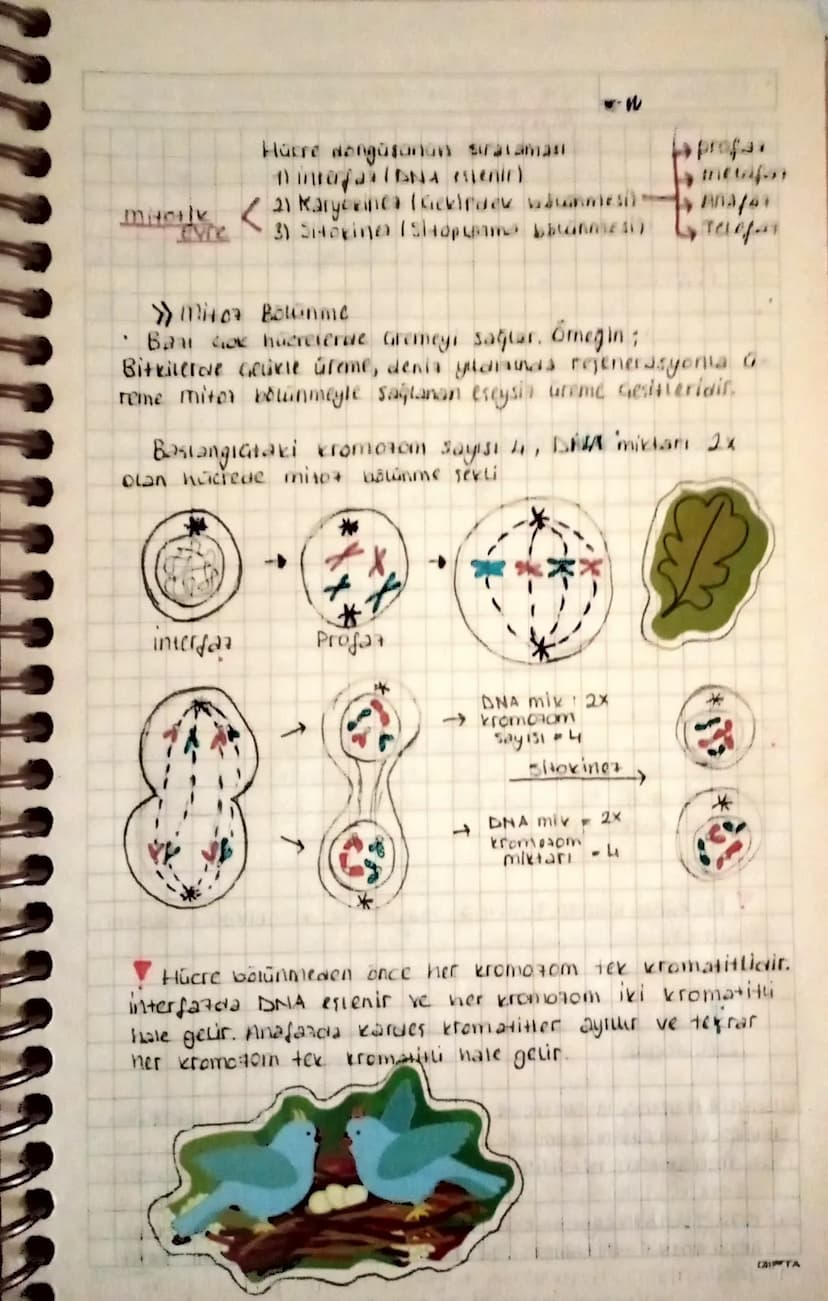 Hücre döngüsünün sıralaması
1) interfaz (DNA eşlenir)
mitotik evre
2) Karyokinez (Çekirdek bölünmesi)
3) Sitokinez (Sitoplazma bölünmesi)
profaz
metafaz
Anafaz
Telofaz
>> Mitoz Bölünme
· Bazı çok hücrelerde üremeyi sağlar. Örneğin;
Bitkilerde çelikle üreme, deniz yıldızında rejenerasyonla ü-
reme mitoz bölünmeyle sağlanan eşeysiz üreme çeşitleridir.
Başlangıçtaki kromozom sayısı 4, DNA miktarı 2x
olan hücrede mitoz bölünme şekli
interfaz
Profaz
DNA mik : 2x
kromozom
sayısı = 4
Sitokinez
DNA mik = 2x
kromozom
miktarı = 4
Hücre bölünmeden önce her kromozom tek kromatitlidir.
interfazda DNA eşlenir ve her kromozom iki kromatitli
hale gelir. Anafazda kardeş kromatitler ayrılır ve tekrar
her kromozom tek kromatitli hale gelir.